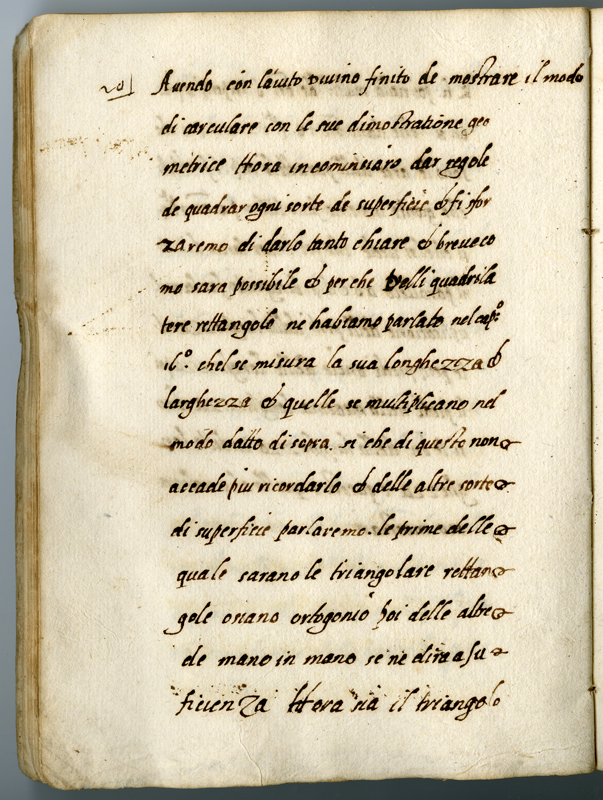 20] Avendo con l'aiuto divino finito de mostrare il modo
di carculare con le sue dimostratione geo
metrice Hora incominciaro dar regole
de quadrar ogni sorte de superficie & si sfor
zaremo di darlo tanto chiare & breve co
mo sara possibile & perche Delli quadrila
tere rettangolo ne habiamo parlato nel cap.º
16.º chel se misura la sua longhezza &
larghezza & quelle se multiplicano nel
modo datto di sopra. si che di questo non
accade piu ricordarlo & delle altre sorte
di superficie parlaremo. le prime delle
quale sarano le triangolare rettan
gole oviano ortogonio poi delle altre
de mano in mano se ne dira a su
ficienza Hora sia il triangolo